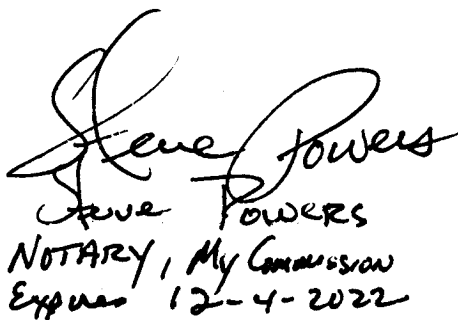 Steve Powers
Steve Powers
NOTARY, My Commission
Expires 12-4-2022